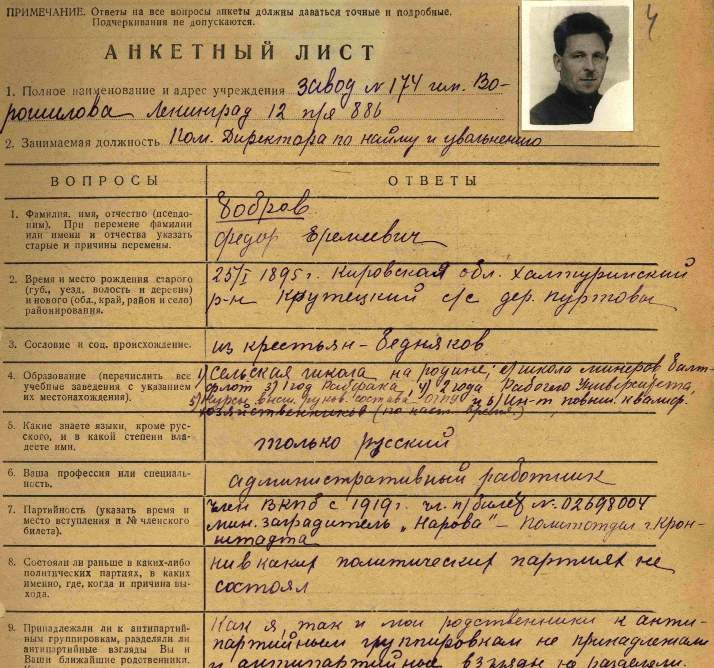 ПРИМЕЧАНИЕ. Ответы на все вопросы анкеты должны даваться точные и подробные.
Подчеркивания не допускаются.
4
АНКЕТНЫЙ ЛИСТ
1. Полное наименование и адрес учреждения завод №174 им. Во-
рошилова Ленинград 12 п/я 886
2. Занимаемая должность Пом. Директора по найму и увольнению
ВОПРОСЫ
ОТВЕТЫ
1. Фамилия, имя, отчество (псевдо-
ним). При перемене фамилии
или имени и отчества указать
старые и причины перемены.
Бобров
Федор Еремеевич
2. Время и место рождения старого
(губ., уезд, волость и деревня)
и нового (обл., край, район и село)
районирования.
25/I 1895г. Кировская обл. Халтуринский
р-н Крутецкий с/с дер. Пуртовы
3. Сословие и соц. происхождение.
из крестьян-бедняков
4. Образование (перечислить все
учебные заведения с указанием
их местонахождения).
1) Сельская школа на родине, 2) школа минеров Балт-
флот 3) 1 год Рабфака, 4) 2 года Рабочего Университета,
5) Курсы высш. руков. состава ОГПУ и 6) Ин-т повыш. квалиф.
хозяйственников (по наст. время)
5. Какие знаете языки, кроме рус-
ского, и в какой степени вла-
деете ими.
только русский
6. Ваша профессия или специаль-
ность.
административный работник
7. Партийность (указать время и
место вступления и № членского
билета).
член ВКПб с 1919г. чл. п/билет №02698004
мин. заградитель „Нарова" – Политотдел г. Крон-
штадта
8. Состояли ли раньше в каких-либо
политических партиях, в каких
именно, где, когда и причина вы-
хода.
ни в каких политических партиях не
состоял
9. Принадлежали ли к антипартий-
ным группировкам, разделяли ли
антипартийные взгляды Вы и
Ваши ближайшие родственники.
Как я, так и мои родственники к анти-
партийным группировкам не принадлежали
и антипартийные взгляды не разделяли.